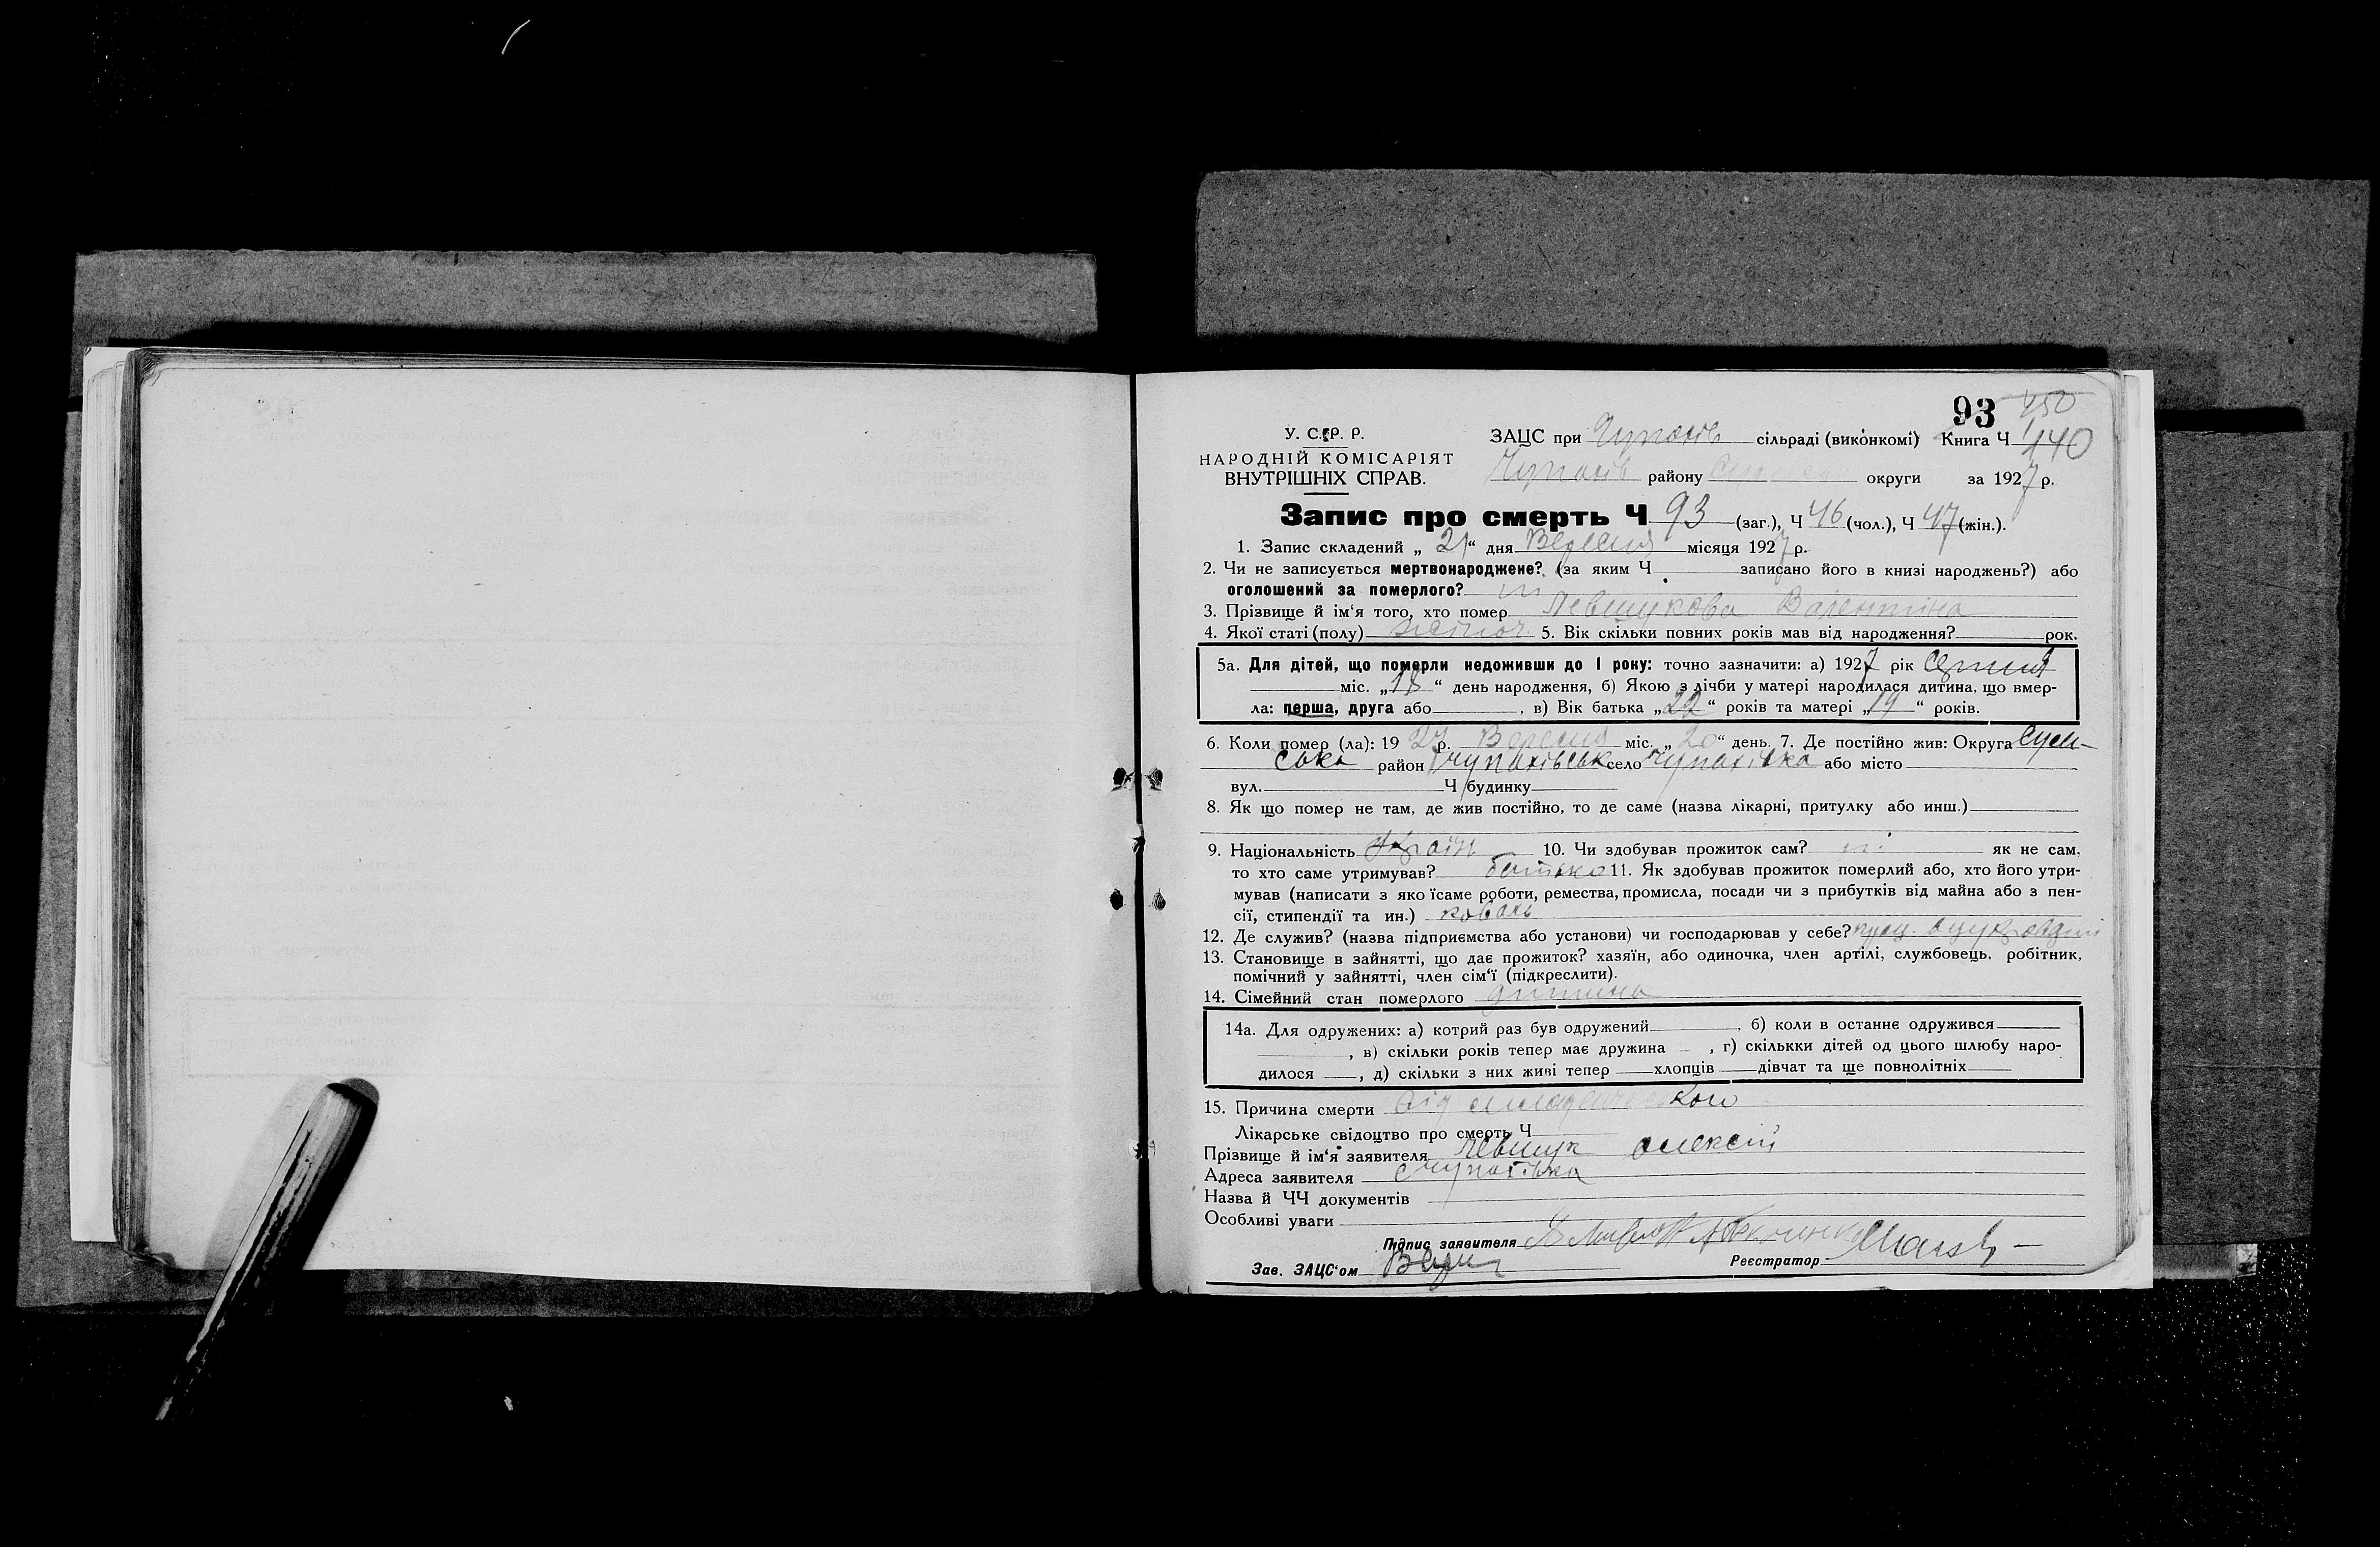 93
У. С. Р. Р.
НАРОДНІЙ КОМІСАРІЯТ
ВНУТРІШНІХ СПРАВ.
ЗАЦС при Чупахів сільраді (виконкомі) Книга Ч 140
Чупахів району округи за 1927 р.
Запис про смерть Ч 93 (заг.), Ч 46 (чол.), Ч 47 (жін.).
1. Запис складений „ 21 “ дня Вересня місяця 1927 р.
2. Чи не записується мертвонароджене? (за яким Ч записано його в книзі народжень?) або
оголошений за померлого? ні
3. Прізвище й ім‘я того, хто помер Левшукова Валентина
4. Якої статі (полу) жіноч. 5. Вік скільки повних років мав від народження? рок.
5а. Для дітей, що померли недоживши до 1 року: точно зазначити: а) 1927 рік Серпня
міс. „ 18 “ день народження, б) Якою з лічби у матері народилася дитина, що вмер-
ла: перша, друга або , в) Вік батька „ 22 “ років та матері „ 19 “ років.
6. Коли помер (ла): 19 27 р. Вересня міс. „ 20 “ день. 7. Де постійно жив: Округа Сум-
ська район Чупахівськ село Чупахівка або місто
вул. Ч будинку
8. Як що помер не там, де жив постійно, то де саме (назва лікарні, притулку або инш.)
9. Національність Україн 10. Чи здобував прожиток сам? ні як не сам,
то хто саме утримував? батько 11. Як здобував прожиток померлий або, хто його утри-
мував (написати з яко їсаме роботи, ремества, промисла, посади чи з прибутків від майна або з пен-
сії, стипендії та ин.) коваль
12. Де служив? (назва підприємства або установи) чи господарював у себе?
13. Становище в зайнятті, що дає прожиток? хазяїн, або одиночка, член артілі, службовець, робітник,
помічний у зайнятті, член сім‘ї (підкреслити).
14. Сімейний стан померлого дитина
14а. Для одружених: а) котрий раз був одружений , б) коли в останнє одружився
, в) скільки років тепер має дружина , г) скількки дітей од цього шлюбу наро-
дилося , д) скільки з них живі тепер хлопців дівчат та ще повнолітніх
15. Причина смерти від
Лікарське свідоцтво про смерть Ч
Прізвище й ім‘я заявителя Левшук Олексій
Адреса заявителя с Чупахівка
Назва й ЧЧ документів
Особливі уваги
Підпис заявителя
Зав. ЗАЦС‘ом Реєстратор